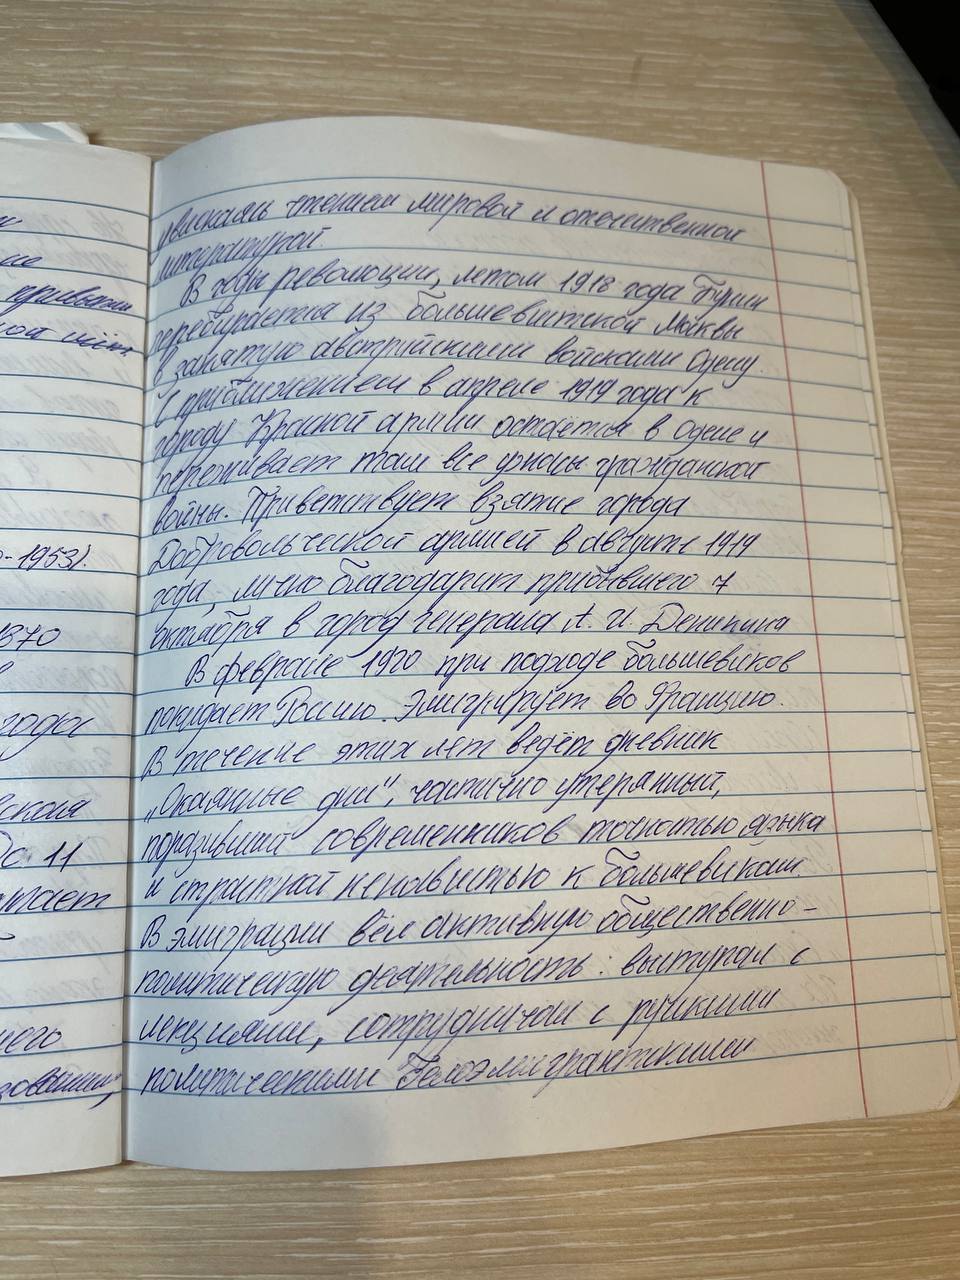 увлекаясь чтением мировой и отечественной
литературой.
В годы революции, летом 1918 года Бунин
перебирается из большевистской Москвы
в занятую австрийскими войсками Одессу.
С приближением в апреле 1919 года к
городу Красной армии остаётся в Одессе и
переживает там все ужасы гражданской
войны. Приветствует взятие города
Добровольческой армией в августе 1919
года, лично благодарит прибывшего 7
октября в город генерала А. И. Деникина
В феврале 1920 при подходе большевиков
покидает Россию. Эмигрирует во Францию.
В течение этих лет ведёт дневник
„Окаянные дни", частично утерянный,
поразивший современников точностью языка
и страстной ненавистью к большевикам.
В эмиграции вёл активную общественно-
политическую деятельность: выступал с
лекциями, сотрудничал с русскими
политическими
-1953).
1870
в
года
До 11